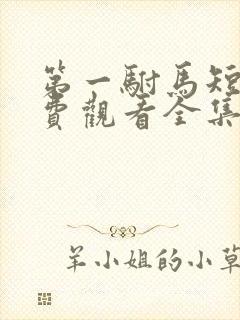 第一駙馬短
費觀看全集
羊小姐的小草